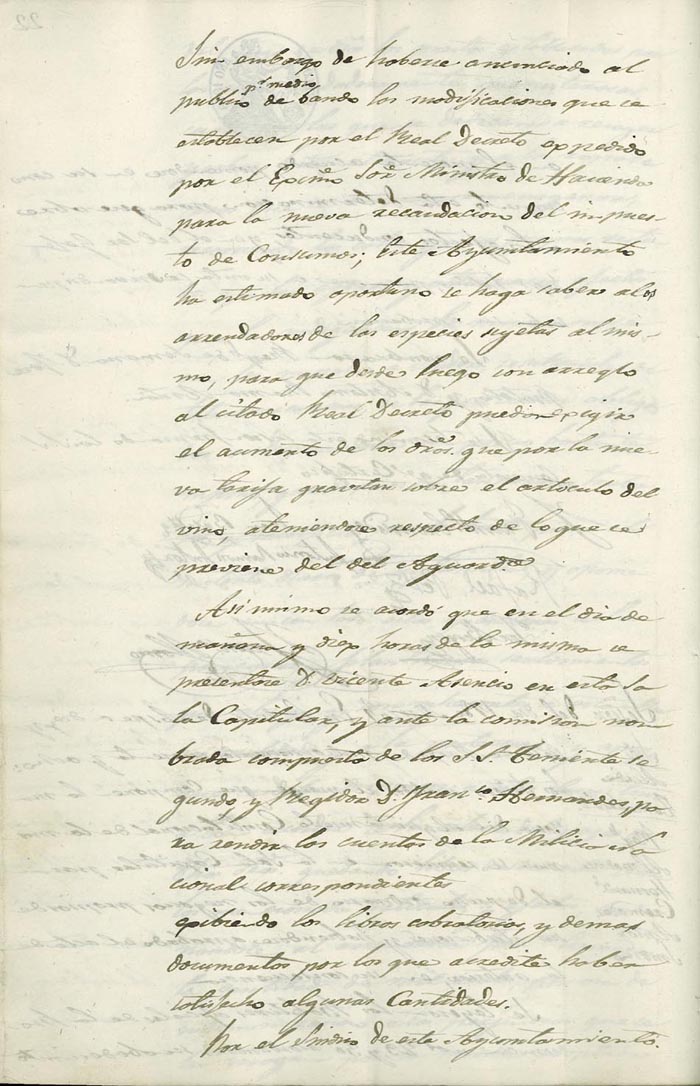 Sin embargo de haberse anunciado al
pr. medio
publico de bando las modificaciones que se
establecen por el Real Decreto expedido
por el Excmo Sor Ministro de Hacienda
para la nueva recaudacion del impues-
to de Consumos; Este Ayuntamiento
ha estimado oportuno se haga saber a los
arrendadores de las especies sujetas al mis-
mo, para que desde luego con arreglo
al citado Real Decreto puedan exigir
el aumento de los dros. que por la nue-
va tarifa gravitan sobre el articulo del
vino, ateniendose respecto de lo que se
previene del del Aguardte
Asi mismo se acordó que en el dia de
mañana y diez horas de la misma se
presentase D. Vicente Asencio en esta Sa
la Capitular, y ante la comision nom
brada compuesta de los S.S. Teniente se
gundo, y Regidor D. Franco. Hernandes, pa
ra rendir las cuentas de la Milicia Na
cional correspondientes
exibiendo los libros cobratorios, y demas
documentos por los que acredite haber
satisfecho algunas Cantidades.
Por el Sindico de este Ayuntamiento.